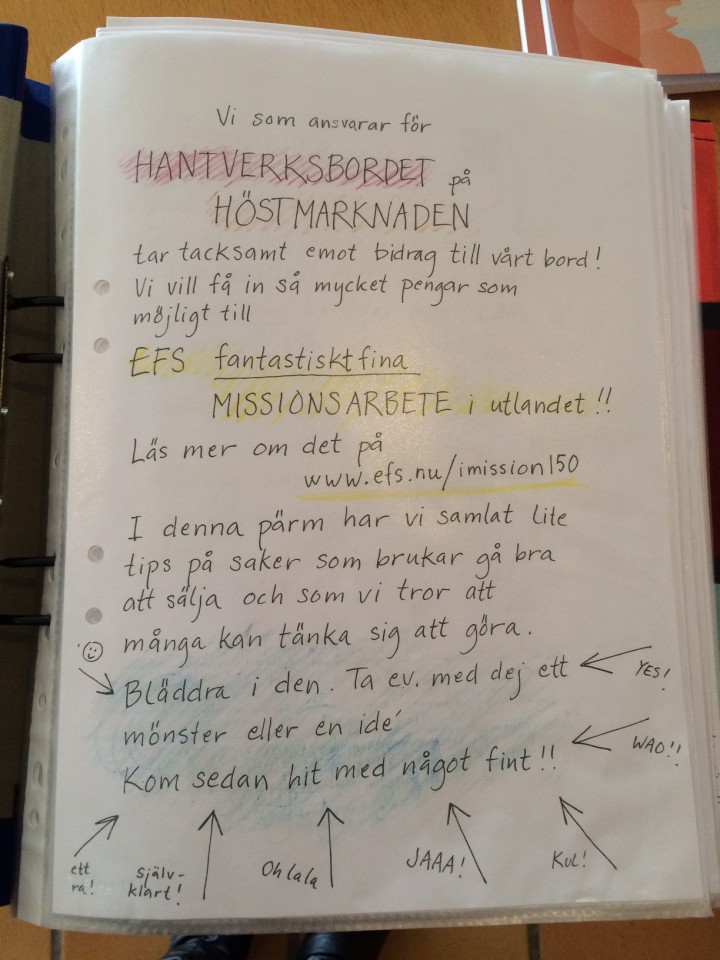 Vi som ansvarar för
HANTVERKSBORDET på
HÖSTMARKNADEN
tar tacksamt emot bidrag till vårt bord!
Vi vill få in så mycket pengar som
möjligt till
EFS fantastiskt fina
MISSIONSARBETE i utlandet!!
Läs mer om det på
www.efs.nu/imission150
I denna pärm har vi samlat lite
tips på saker som brukar gå bra
att sälja och som vi tror att
många kan tänka sig att göra.
Bläddra i den. Ta ev. med dej ett
YES!
mönster eller en idé
WAO!!
Kom sedan hit med något fint!!
ett
ra!
Själv-
klart!
Oh lala
JAAA!
KUL!